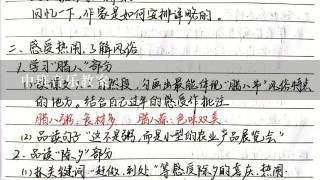 回忆一下，作家是如何安排详略的。
二、感受热闹，了解风俗
1. 学习“腊八”部分
自然段，勾画出最能体现“腊八节”风俗特点
的地方。结合自己过年的感受作批注
腊八粥：食材多 腊八蒜：色味双美
(2) 品读句子“这不是粥，而是小型的农业产品展览会”
2. 品读“除夕”部分
(1) 抓关键词“赶做、到处”等感受除夕的喜庆、热闹